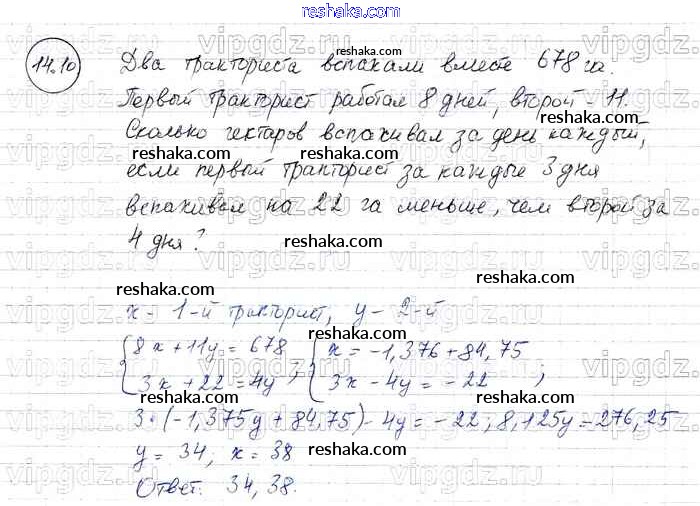 14.10 Два тракториста вспахали вместе 678 га.
Первый тракторист работал 8 дней, второй - 11.
Сколько гектаров вспахивал за день каждый,
если первый тракторист за каждые 3 дня
вспахивал на 22 га меньше, чем второй за
4 дня?
x - 1-й тракторист, y - 2-й
{8x+11y=678 {x=-1,376+84,75
{3x+22=4y; {3x-4y=-22;
3·(-1,375y+84,75)-4y=-22; 8,125y=276,25
y=34; x=38
Ответ: 34, 38.
reshaka.com
reshaka.com
reshaka.com
reshaka.com
reshaka.com
reshaka.com
reshaka.com
reshaka.com
reshaka.com
reshaka.com
reshaka.com
vipgdz.ru